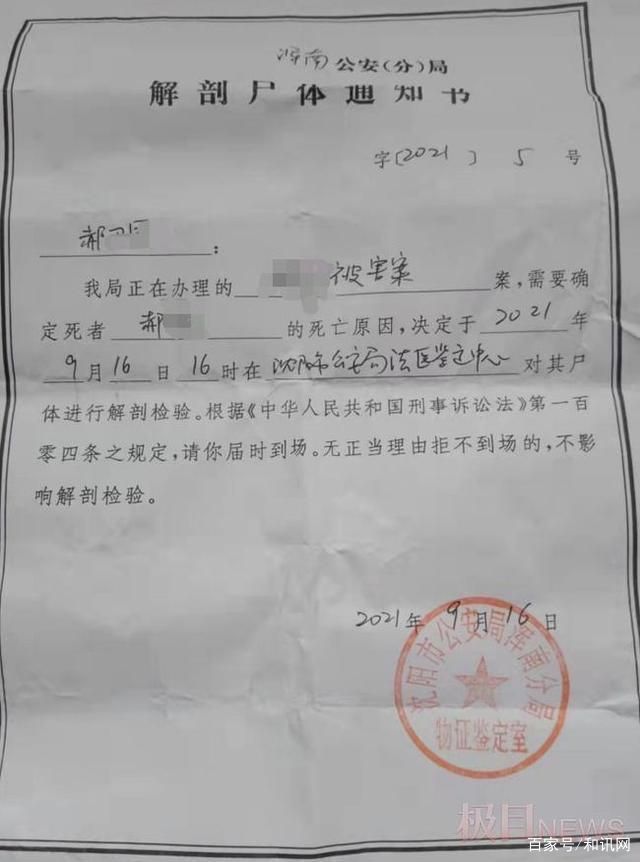 浑南公安(分)局
解剖尸体通知书
字[2021]5号
郝:
我局正在办理的被害案案,需要确
定死者郝的死亡原因,决定于2021年
9月16日16时在沈阳市公安局法医鉴定中心对其尸
体进行解剖检验。根据《中华人民共和国刑事诉讼法》第一百
零四条之规定,请你届时到场。无正当理由拒不到场的,不影
响解剖检验。
2021年9月16日
沈阳市公安局浑南分局
物证鉴定室
极目NEWS
百家号/和讯网